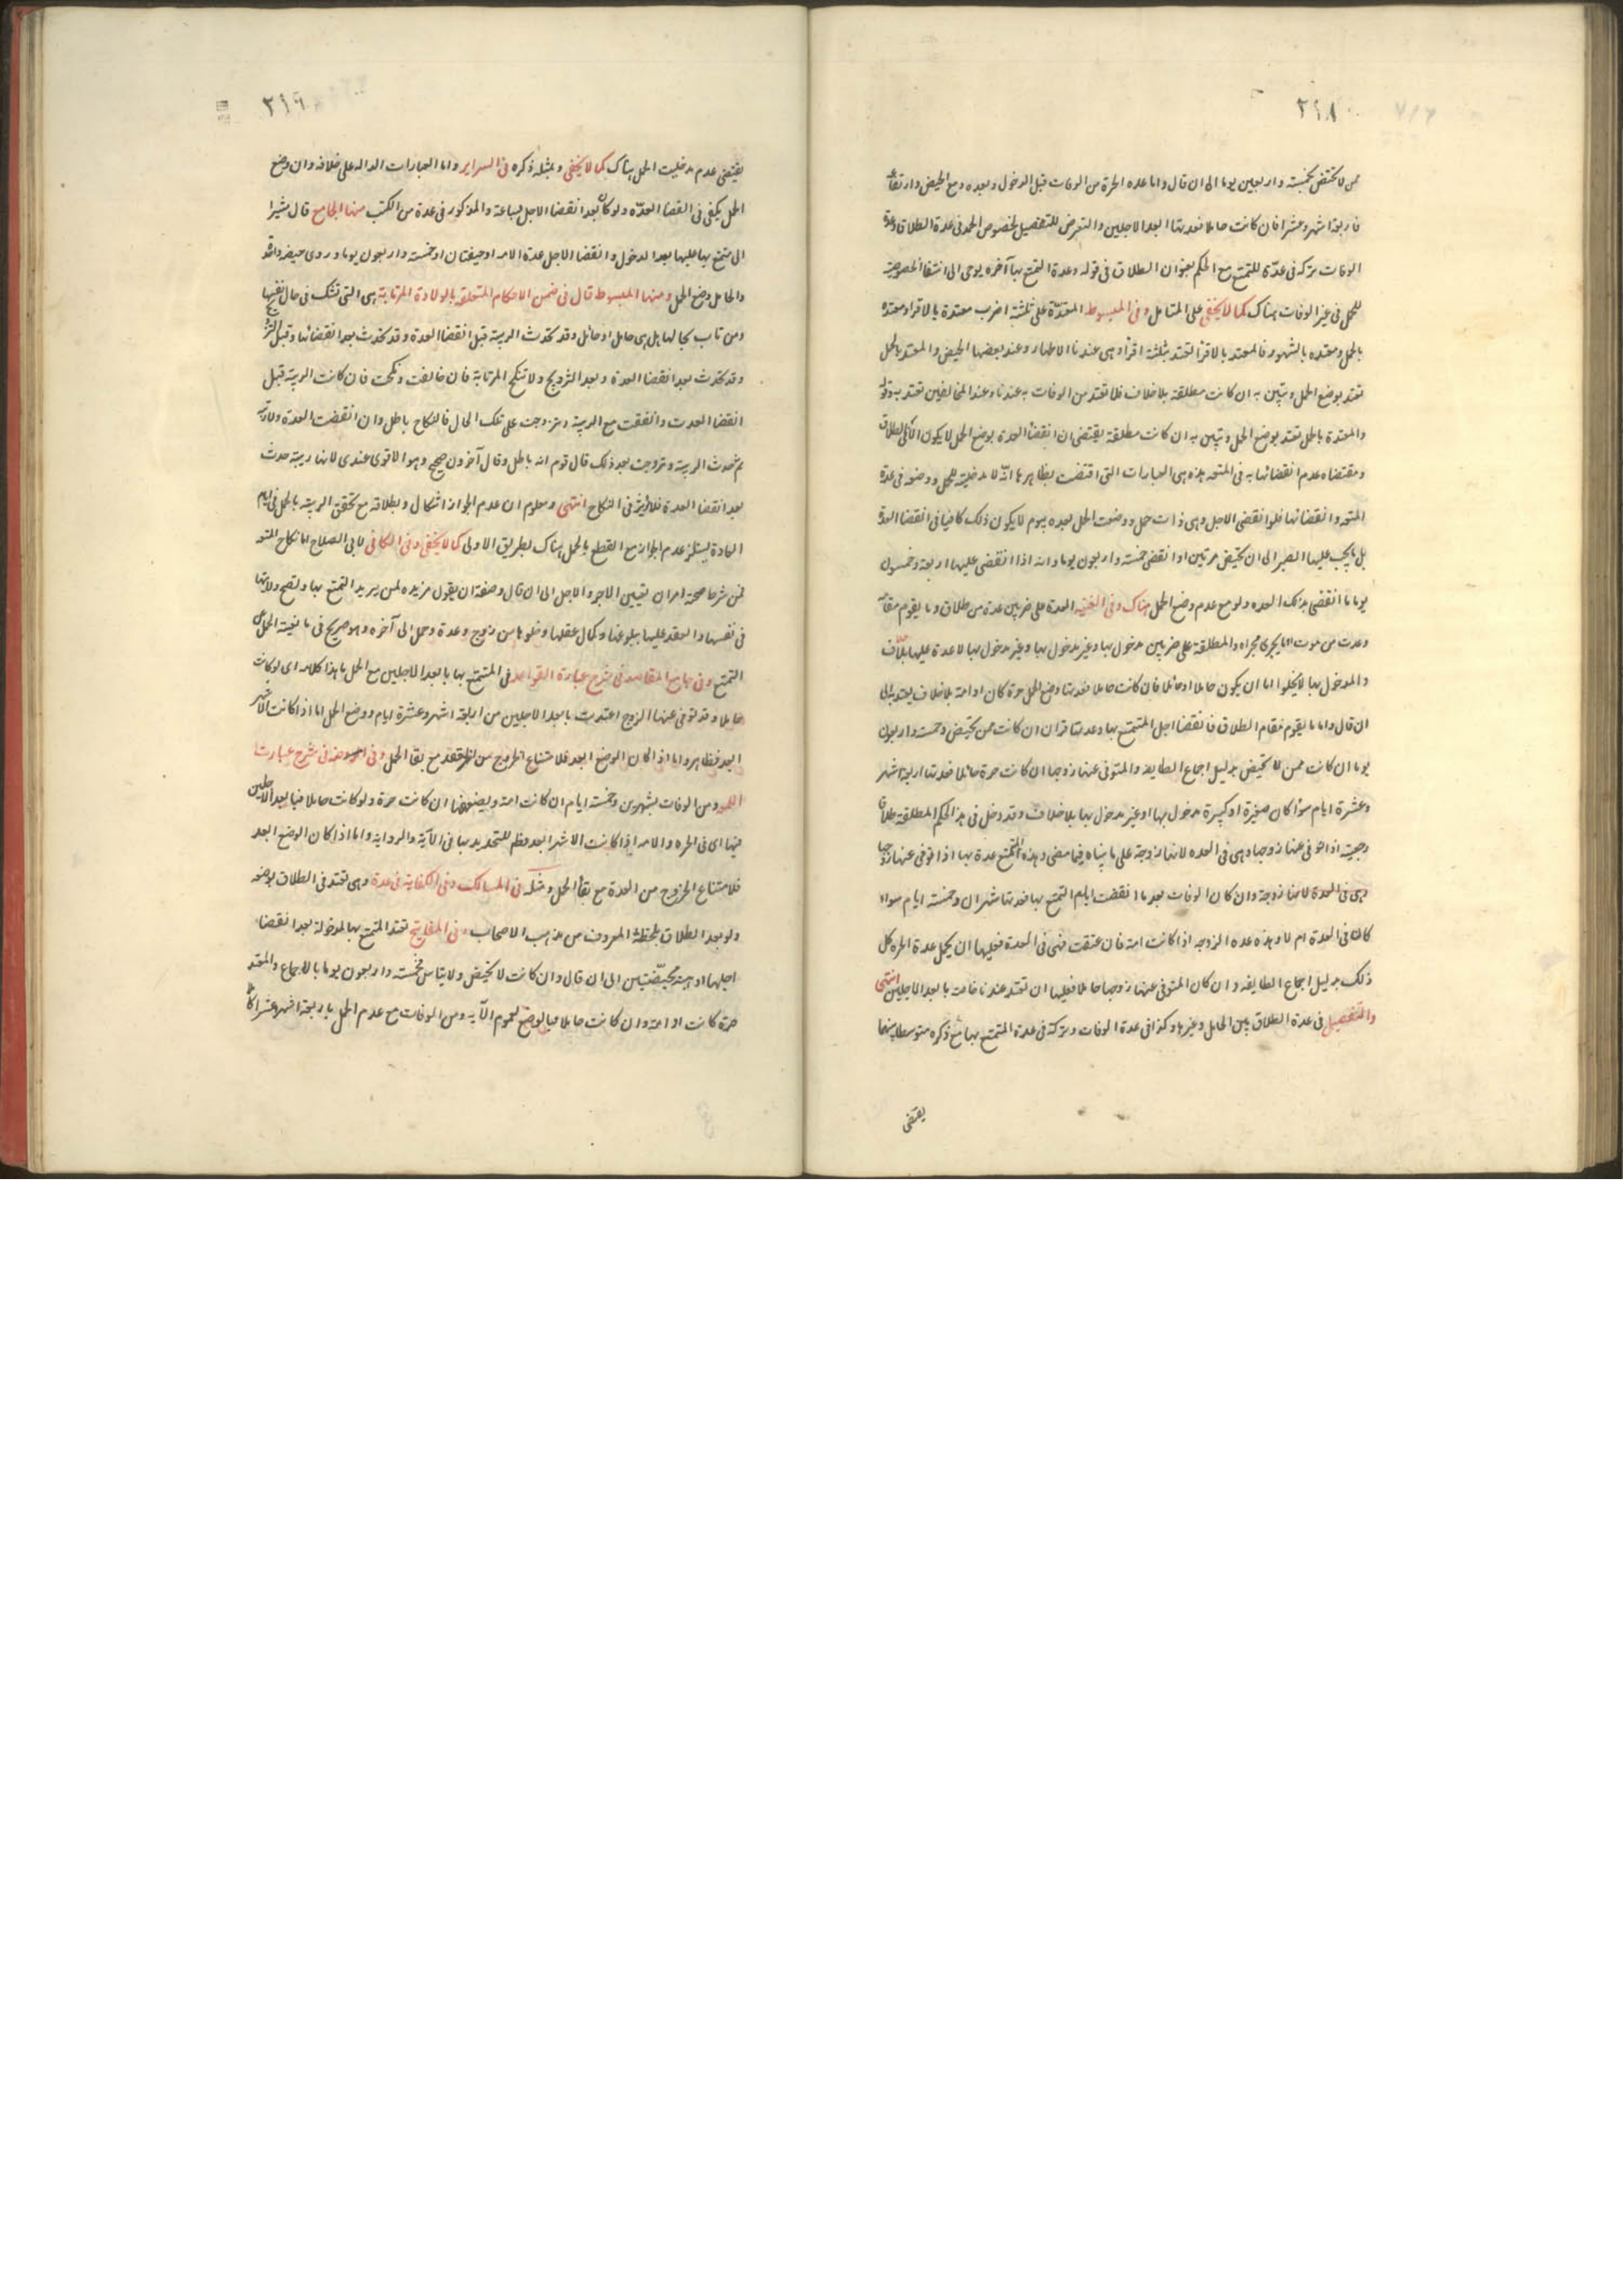 ٣١٨
ممن لا تحتض بخمسة واربعين يوما الى ان قال واما عده الحرة من الوفات قبل الدخول وبعده ومع الحيض وارتفاعه
فاربعة اشهر وعشرا فان كانت حاملا فعدتها ابعد الاجلين والتعرض للتفصيل لخصوص الحمل فى عدة الطلاق وعدة
الوفات وتركه فى عدّة المتمتع مع الحكم بعنوان الطلاق فى قوله وعدة المتمتع بها آخره يومى الى انتفا الخصوصية
للحمل فى غير الوفات هناك كما لا يخفى على المتامل وفى المبسوط المعتدّة على ثلثة اضرب معتدة بالاقراء ومعتده
بالحمل ومعتده بالشهور فالمعتد بالاقرا تعتد بثلثة اقرأ وهى عندنا الاطهار وعند بعضها الحيض والمعتد بالحمل
تعتد بوضع الحمل وتبين به ان كانت مطلقة بلا خلاف فلا تعتد من الوفات به عندنا وعند المخالفين تعتد به وقوله
والمعتدة بالحمل تعتد بوضع الحمل وتبين به ان كانت مطلقة يقتضى ان انقضا العدة بوضع الحمل لا يكون الا فى الطلاق
ومقتضاه عدم انقضائها به فى المتعه هذه هى العبارات التى اقتضت بظاهرها انّه لا مدخلية للحمل ووضعه فى عدة
المتعه وانقضائها فلو انقضى الاجل وهى ذات حمل ووضعت الحمل بعده بيوم لا يكون ذلك كافيا فى انقضا العدة
بل يجب عليها الصبر الى ان تحيض مرتين او انقضى خمسة واربعون يوما وانه اذا انقضى عليها اربعة وخمسون
يوما انقضى بذلك العده ولو مع عدم وضع الحمل هناك وفى الغنيه العدة على ضربين عدة من طلاق وما يقوم مقامه
وعدت من موت وما يجرى مجراه والمطلقة على ضربين مدخول بها وغير مدخول بها وغير مدخول بها لا عدة عليها بلا خلاف
والمدخول بها لا يخلوا اما ان يكون حاملا او حائلا فان كانت حاملا فعدتها وضع الحمل حرة كان او امة بلا خلاف يعتد به الى
ان قال واما ما يقوم مقام الطلاق فانقضا اجل المتمتع بها وعدتها قران ان كانت ممن تحيض وخمسة واربعون
يوما ان كانت ممن لا تحيض بدليل اجماع الطايفه والمتوفى عنها زوجها ان كانت حرة حائلا فعدتها اربعة اشهر
وعشرة ايام سوا كان صغيرة او كبيرة مدخول بها او غير مدخول بها بلا خلاف وقد دخل فى هذا الحكم المطلقة طلاق
رجعية اذا توفى عنها زوجها وهى فى العده لانها زوجة على ما بيناه فيما مضى وهذه المتمتع عدة بها اذا توفى عنها زوجها
وهى فى العدة لانها زوجة وان كان الوفات بعد ما انقضت ايام المتمتع بها فعدتها شهران وخمسة ايام سواء
كان فى العدة ام لا وهذه عده الزوجه اذا كانت امة فان عتقت فهى فى العدة فعليها ان يكمل عدة الحره كل
ذلك بدليل اجماع الطايفه وان كان المتوفى عنها زوجها حاملا فعليها ان تعتد عندنا خاصة بابعد الاجلين انتهى
والتفصيل فى عدة الطلاق بين الحامل وغيرها وكذا فى عدة الوفات وتركه فى عدة المتمتع بها مع ذكره متوسطا بينهما
يقتضى
٣١٩
يقتضى عدم مدخليت الحمل هناك كما لا يخفى وبمثله ذكره فى السراير واما العبارات الداله على خلافه وان وضع
الحمل يكفى فى انقضا العدّه ولو كان بعد انقضا الاجل بساعة والمذكور فى عدة من الكتب منها الجامع قال مشيرا
الى متمتع بها عليها بعد الدخول وانقضا الاجل عدة الامه او حيضتان او خمسة واربعون يوما وروى حيضة واحدة
والحامل وضع الحمل ومنها المبسوط قال فى ضمن الاحكام المتعلقه بالولادة المرتابة هى التى تشك فى حال نفسها
ومن تاب بحالها هل هى حامل او حائل وقد تحدث الريبة قبل انقضا العدة وقد تحدث بعد انقضائها وقبل التزويج
وقد تحدث بعد انقضا العدة وبعد التزويج ولا تنكح المرتابة فان خالفت ونكحت فان كانت الريبة قبل
انقضا العدت واتفقت مع الريبة وتزوجت على تلك الحال فالنكاح باطل وان انقضت العدة ولا ريبه
ثم حدث الريبة وتزوجت بعد ذلك قال قوم انه باطل وقال آخرون صحيح وهو الاقوى عندى لانها ريبة حدث
بعد انقضا العدة فلا تؤثر فى النكاح انتهى ومعلوم ان عدم الجواز اشكال وبطلانه مع تحقق الريبة بالحمل فى ايام
العادة يستلزم عدم الجواز مع القطع بالحمل هناك بطريق الاولى كما لا يخفى وفى الكافى لابى الصلاح اما نكاح المتعه
فمن شرط صحة امران تعيين الاجر والاجل الى ان قال وصفته ان يقول مزيده لمن يريد التمتع بها وتصح ولايتها
فى نفسها والعقد عليها ببلوغها وكمال عقلها وخلوها من زوج وعدة وحمل الى آخره وهو صريح فى مانعية الحمل من
التمتع وفى جامع المقاصد فى شرح عبارة القواعد فى المتمتع بها بابعد الاجلين مع الحمل ما هذا كلامه اى لو كانت
حاملا وقد توفى عنها الزوج اعتدت بابعد الاجلين من اربعة اشهر وعشرة ايام ووضع الحمل اما اذا كانت الاشهر
ابعد فظاهر واما اذا كان الوضع ابعد فلامتناع الخروج من العدة مع بقا الحمل وفى الروضه فى شرح عبارت
اللمعه ومن الوفات بشهرين وخمسة ايام ان كانت امة وبضعفها ان كانت حرة ولو كانت حاملا فبابعد الاجلين
فيها اى فى الحره والامه اذا كانت الاشهر ابعد فظم للتحديد بها فى الآية والروايه واما اذا كان الوضع ابعد
فلامتناع الخروج من العدة مع بقأ الحمل ومثله فى المسالك وفى الكفاية فى عدة وهى تعتد فى الطلاق بوضعه
ولو بعد الطلاق بلحظة المعروف من مذهب الاصحاب وفى المفاتيح تعتد المتمتع بها المدخولة بعد انقضاء
اجلها او هبته بحيضتين الى ان قال وان كانت لا تحيض ولا يتاس فخمسة واربعون يوما بالاجماع والمعتمد
حرة كانت او امة وان كانت حاملا فبالوضع لعموم الآيه ومن الوفات مع عدم الحمل باربعة اشهر وعشرا كان